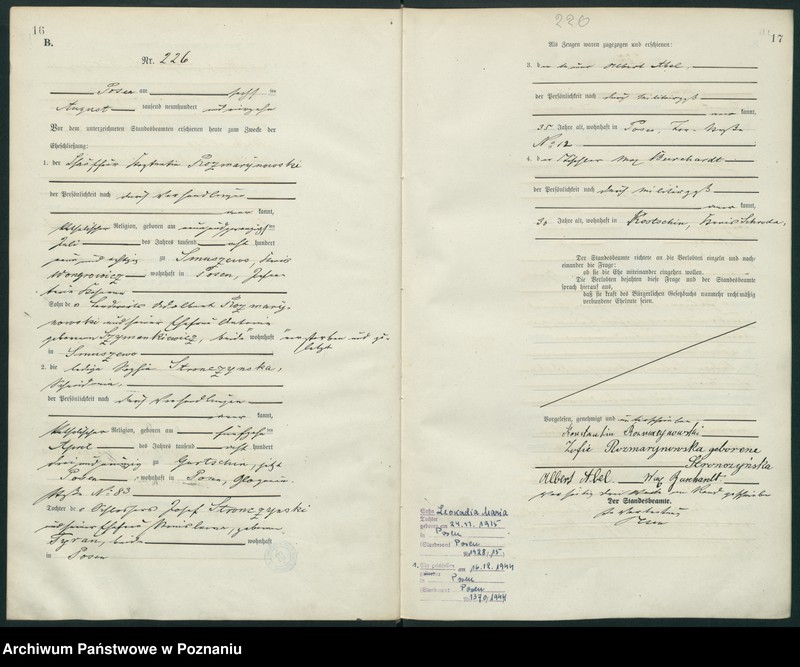 16
B.
Nr. 226
Posen am sechsten
August tausend neunhundert und vierzehn
Vor dem unterzeichneten Standesbeamten erschienen heute zum Zwecke der
Eheschließung:
1. der Konstantin Rozmarynowski
der Persönlichkeit nach durch Verhandlungen
kannt,
katholischer Religion, geboren am neunundzwanzigsten
Juli des Jahres tausend acht hundert
neun und achtzig zu Smuszewo, Kreis
Wongrowitz, wohnhaft in Posen,
Sohn des Rozmary-
nowski und seiner Ehefrau Antonie
geborenen Szymankiewicz, beide verstorben und zu-
letzt wohnhaft
in Smuszewo
2. die ledige Sophie Stronczynska,
Schneiderin,
der Persönlichkeit nach durch Verhandlungen
kannt,
katholischer Religion, geboren am fünfzehnten
April des Jahres tausend acht hundert
drei und neunzig zu Gurtschin, jetzt
Posen, wohnhaft in Posen, Glogauer-
straße No 83
Tochter des Schlossers Josef Stronczynski
und seiner Ehefrau Stanislawa, geborenen
Tyran, beide wohnhaft
in Posen
220
17
Als Zeugen waren zugezogen und erschienen:
3. der Albert Abel,
der Persönlichkeit nach durch Militärpaß
kannt,
35 Jahre alt, wohnhaft in Posen, Straße
No 12
4. der Tischler Max Burchardt
der Persönlichkeit nach durch Militärpaß
kannt,
30 Jahre alt, wohnhaft in Kostschin, Kreis Schroda.
Der Standesbeamte richtete an die Verlobten einzeln und nach-
einander die Frage:
ob sie die Ehe miteinander eingehen wollen.
Die Verlobten bejahten diese Frage und der Standesbeamte
sprach hierauf aus,
daß sie kraft des Bürgerlichen Gesetzbuchs nunmehr rechtmäßig
verbundene Eheleute seien.
Vorgelesen, genehmigt und unterschrieben
Konstantin Rozmarynowski
Zofie Rozmarynowska geborene
Stronczyńska
Albert Abel. Max Burchardt.
Der Standesbeamte.
Sohn Leokadia Maria
Tochter
geboren am 24.11.1915
in Posen
(Standesamt Posen
Nr 1328/15)
1. Ehe geschlossen am 16.12.1944
in Posen
(Standesamt Posen
Nr 1370/1944
Archiwum Państwowe w Poznaniu